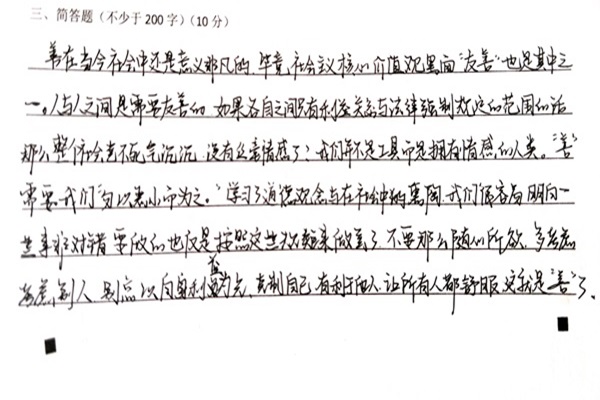 三、简答题（不少于200字）（10分）
善在当今社会中还是意义非凡的，毕竟，社会主义核心价值观里面“友善”也是其中之
一。人与人之间是需要友善的，如果各自之间只有利益关系与法律强制规定的范围的话
那么整个社会死气沉沉，没有丝毫情感了？我们并不是工具而是拥有情感的人类。“善”
需要我们“勿以善小而为之。”学习了道德观念与在社会中的熏陶，我们很容易明白一
些事非对错，要做的也仅是按照这些规矩来做罢了，不要那么随心所欲，多考虑
考虑别人，别总以自身利益为先，克制自己，有利于他人，让所有人都舒服，这就是“善”了。